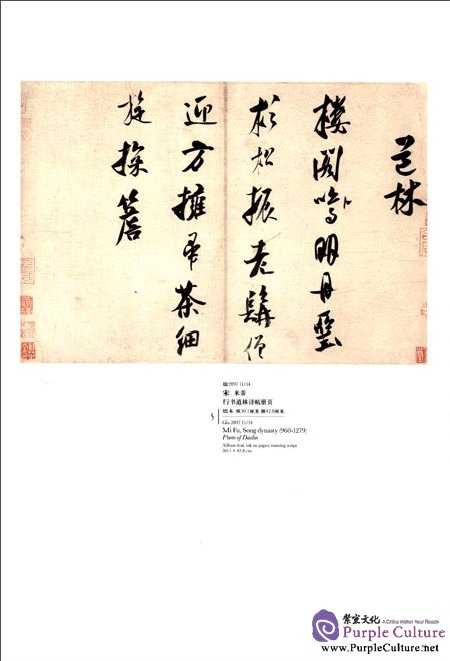 道林
樓閣鳴明丹堊
杉松振老髯僧
迎方擁帚茶細
旋探簷
宋 米芾
行书道林诗帖册页
纸本 纵30.1厘米 横42.8厘米
5
Mi Fu, Song dynasty (960-1279)
Poem of Daolin
Album leaf, ink on paper, running script
30.1 × 42.8 cm
紫室文化 A China Within Your Reach
Purple Culture
www.PurpleCulture.net